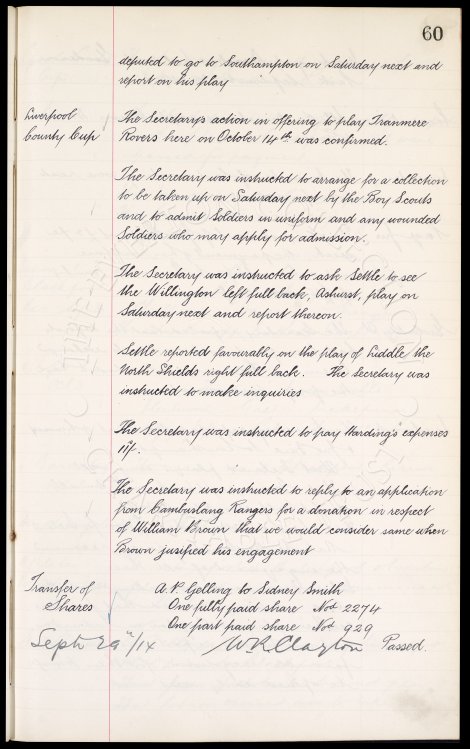 60
deputed to go to Southampton on Saturday next and
report on his play
Liverpool
County Cup
The Secretary's action in offering to play Tranmere
Rovers here on October 14th was confirmed.
The Secretary was instructed to arrange for a collection
to be taken up on Saturday next by the Boy Scouts
and to admit Soldiers in uniform and any wounded
Soldiers who may apply for admission.
The Secretary was instructed to ask Settle to see
the Willington left full back, Ashurst, play on
Saturday next and report thereon.
Settle reported favourably on the play of Liddle the
North Shields right full back. The Secretary was
instructed to make inquiries
The Secretary was instructed to pay Harding's expenses
The Secretary was instructed to reply to an application
from Cambuslang Rangers for a donation in respect
of William Brown that we would consider same when
Brown jusified his engagement
Transfer of
Shares
A. P. Gelling to Sidney Smith
One fully paid share No. 2274
One part paid share No. 929
Sept 29th/14
W R Clayton Passed.